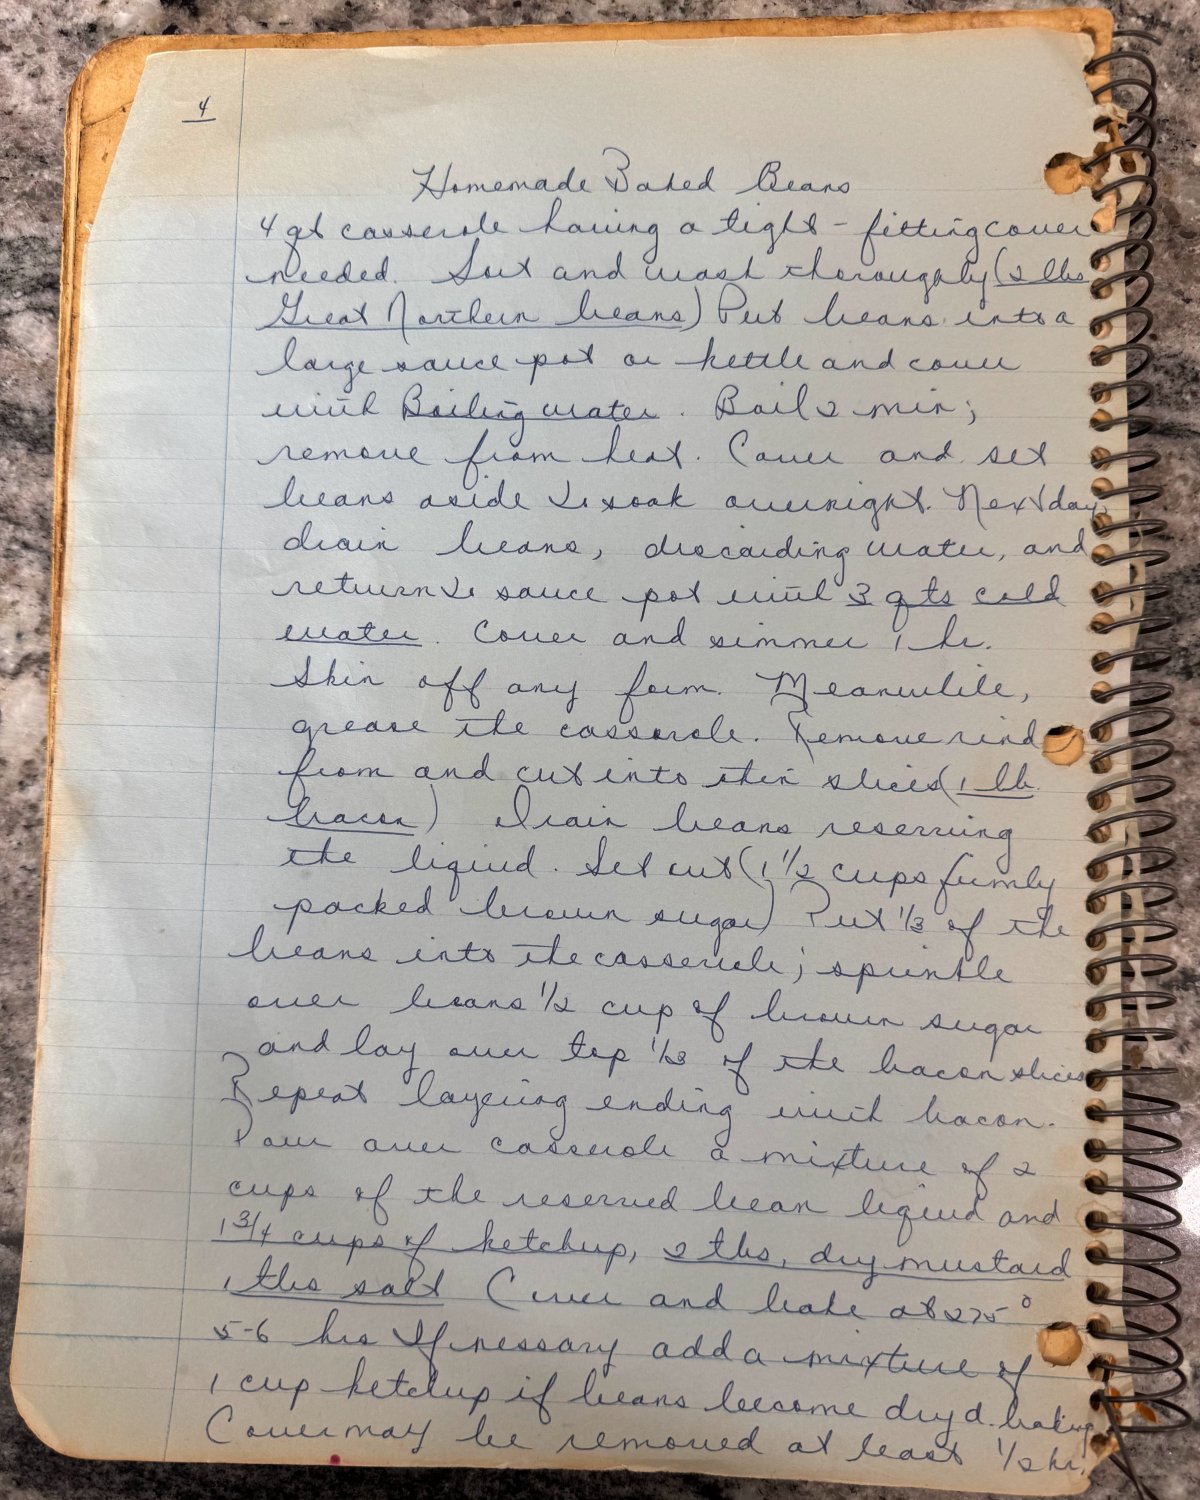 4
Homemade Baked Beans
4 qt casserole having a tight-fitting cover
needed. Sort and wash thoroughly (2 lbs
Great Northern beans) Put beans into a
large sauce pot or kettle and cover
with Boiling water. Boil 2 min;
remove from heat. Cover and set
beans aside to soak overnight. Next day,
drain beans, discarding water, and
return to sauce pot with 3 qts cold
water. Cover and simmer 1 hr.
Skin off any foam. Meanwhile,
grease the casserole. Remove rind
from and cut into thin slices (1 lb.
bacon) Drain beans reserving
the liquid. Set out (1 1/2 cups firmly
packed brown sugar) Put 1/3 of the
beans into the casserole; sprinkle
over beans 1/2 cup of brown sugar
and lay over top 1/3 of the bacon slices
Repeat layering ending with bacon.
Pour over casserole a mixture of 2
cups of the reserved bean liquid and
1 3/4 cups of ketchup, 2 tbs, dry mustard
1 tbs salt Cover and bake at 275°
5-6 hrs If nessary add a mixture of
1 cup ketchup if beans become dry d. baking
Cover may be removed at least 1/2 hr.